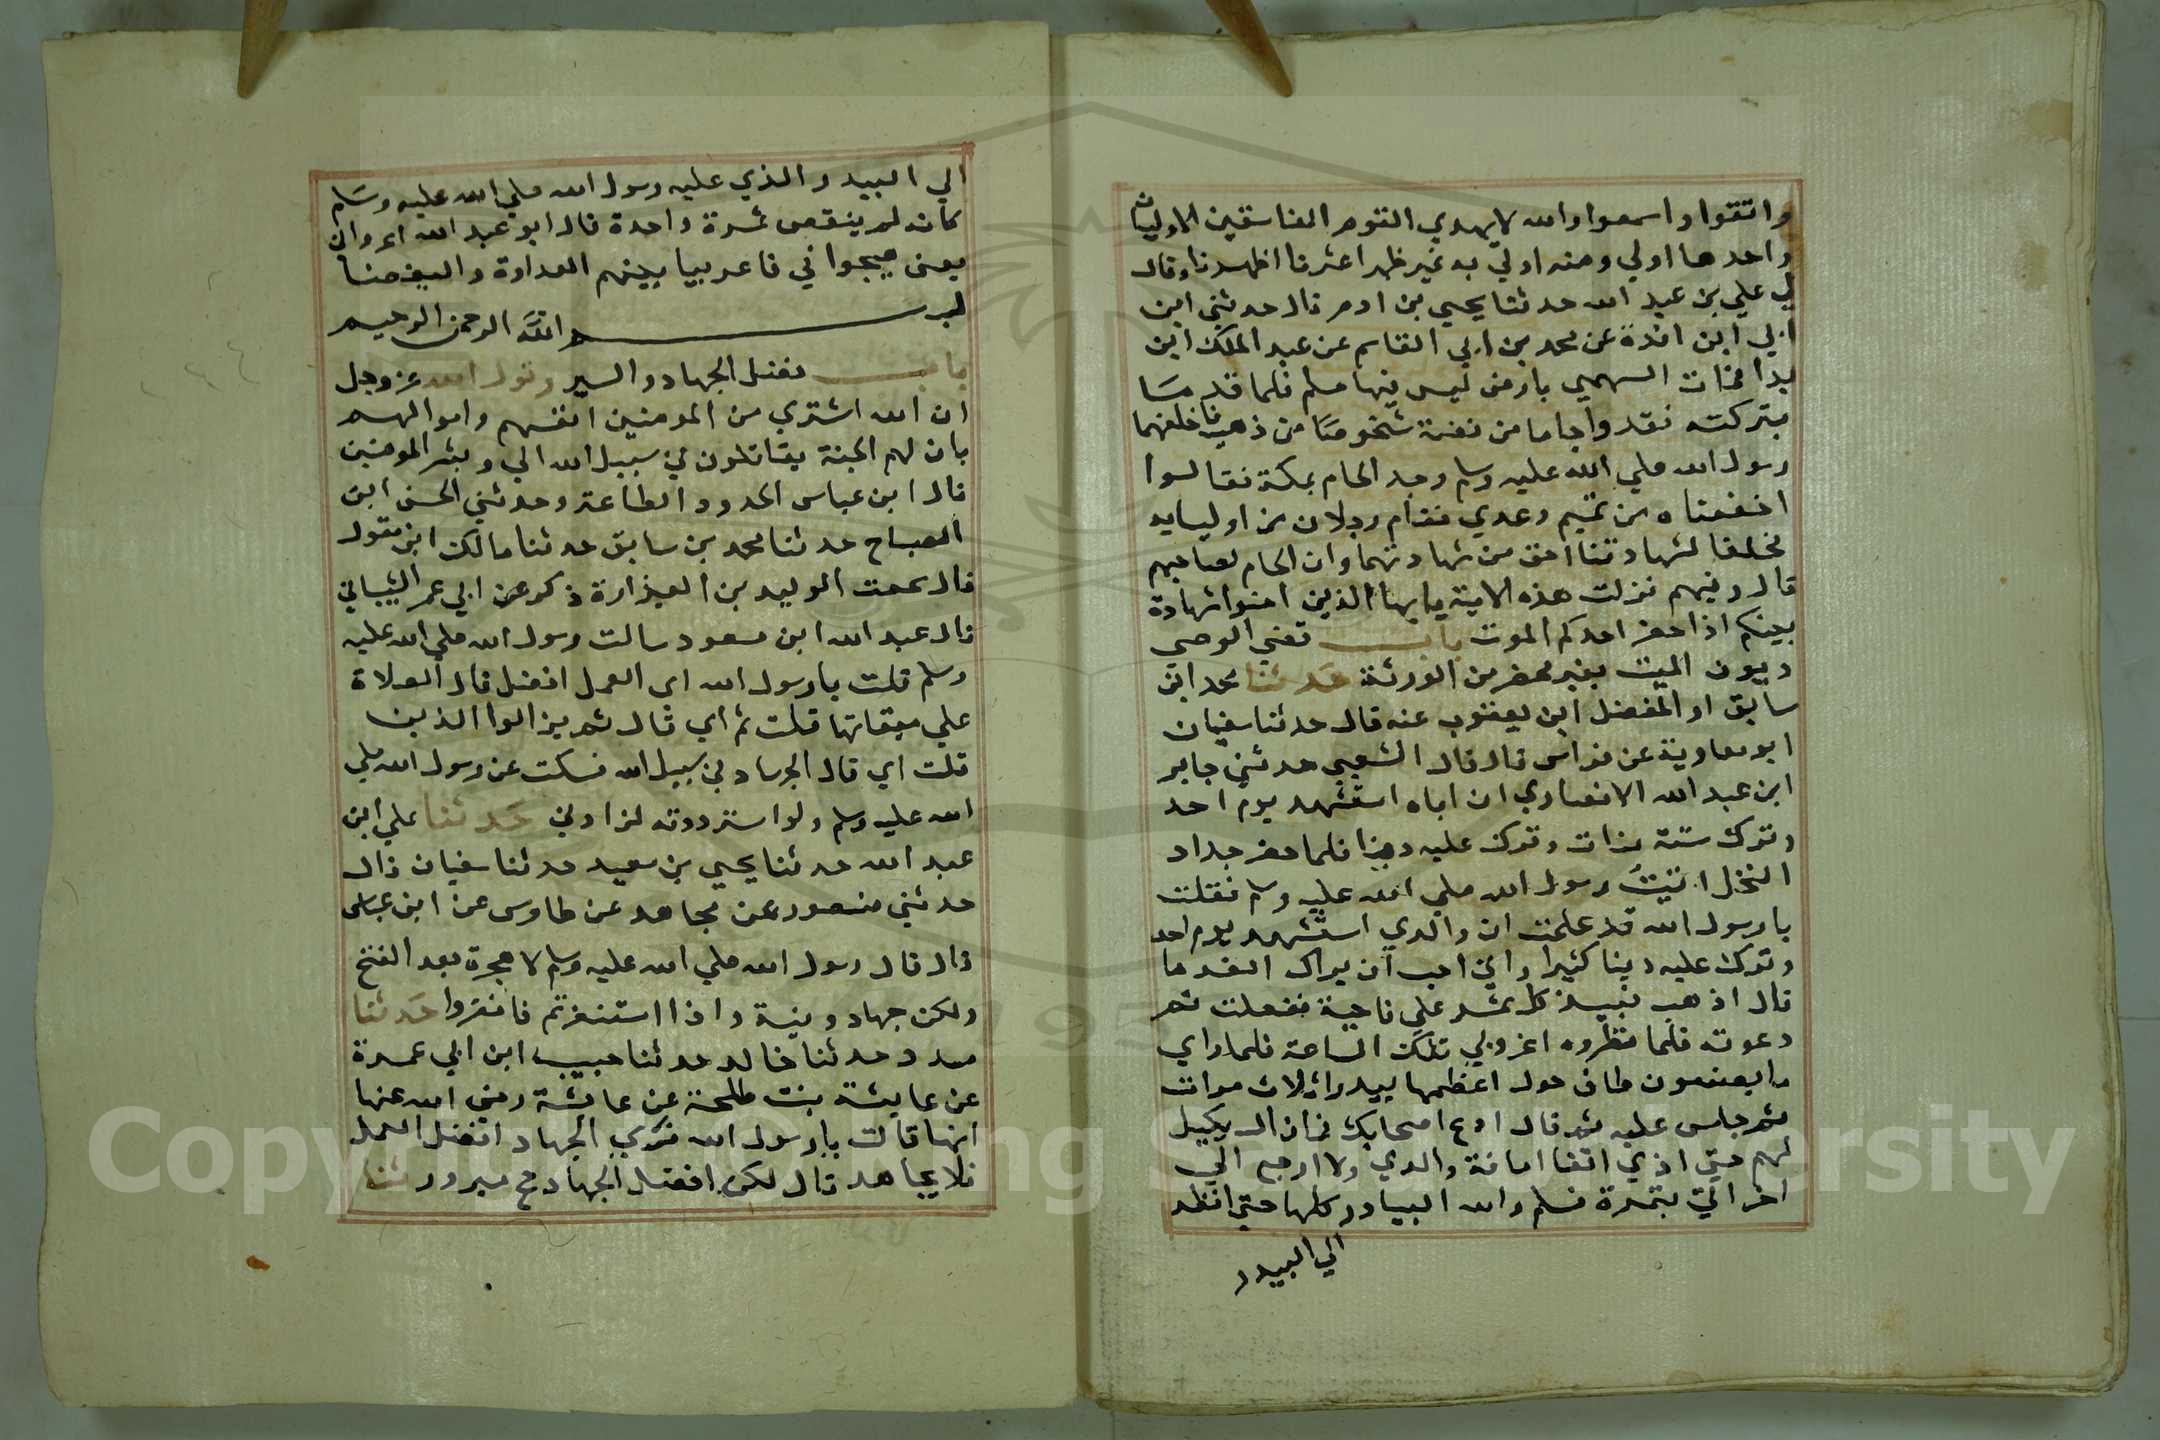 واتقوا واسمعوا والله لا يهدي القوم الفاسقين الاوليان
واحدها اولي ومنه اولي به غير ظهر اعثرنا اظهرنا وقال
لي علي بن عبد الله حدثنا يحيي بن ادم قال حدثني ابن
ابي ابن ائدة عن محمد بن ابي القاسم عن عبد الملك ابن
فمات السهمي بارض ليس فيها مسلم فلما قدما
بتركته فقدوا جاما من فضة مخوصا من ذهب فاحلفهما
رسول الله صلي الله عليه وسلم وجد الجام بمكة فقالوا
من تميم وعدي فقام رجلان من اوليايه
فحلفا لشهادتنا احق من شهادتهما وان الجام لصاحبهم
قال وفيهم نزلت هذه الاية يايها الذين امنوا شهادة
بينكم اذا حضر احدكم الموت باب تقضي الوصي
ديون الميت بغير محضر من الورثة حدثنا محمد ابن
سابق او الفضل ابن يعقوب عنه قال حدثنا سفيان
ابو معاوية عن فراس قال قال الشعبي حدثني جابر
ابن عبد الله الانصاري ان اباه استشهد يوم احد
وترك ستة بنات وترك عليه دينا فلما حضر جداد
النخل اتيت رسول الله صلي الله عليه وسلم فقلت
يا رسول الله قد علمت ان والدي استشهد يوم احد
وترك عليه دينا كثيرا واني احب ان يراك الغرما
قال اذهب فبيدر كل تمر علي ناحية ففعلت ثم
دعوته فلما نظروه اغروبي تلك الساعة فلما راي
ما يصنعون طاف حول اعظمها بيدرا ثلاث مرات
ثم جلس عليه ثم قال ادع اصحابك فما زال يكيل
لهم حتي ادي الله امانة والدي ولا ارجع الي
اخواتي بتمرة فسلم والله البيادر كلها حتي انظر
الي البيدر
الي البيدر الذي عليه رسول الله صلي الله عليه وسلم
كانه لم ينقص تمرة واحدة قال ابو عبد الله اغروابي
يعني هيجوا في فاغرينا بينهم العداوة والبغضا
بسم الله الرحمن الرحيم
باب فضل الجهاد والسير وقول الله عز وجل
ان الله اشتري من المومنين انفسهم واموالهم
بان لهم الجنة يقاتلون في سبيل الله الي وبشر المومنين
قال ابن عباس الحدود الطاعة وحدثني الحسن ابن
الصباح حدثنا محمد بن سابق حدثنا مالك ابن مغول
قال سمعت الوليد بن العيزارة ذكر عن ابي عمر الشيباني
قال عبد الله ابن مسعود سالت رسول الله صلي الله عليه
وسلم قلت يا رسول الله اي العمل افضل قال الصلاة
علي ميقاتها قلت ثم اي قال ثم بر الوالدين
قلت اي قال الجهاد في سبيل الله فسكت عن رسول الله صلي
الله عليه وسلم ولو استزدته لزادني حدثنا علي ابن
عبد الله حدثنا يحيي بن سعيد حدثنا سفيان قال
حدثني منصور عن مجاهد عن طاوس عن ابن عباس
قال قال رسول الله صلي الله عليه وسلم لا هجرة بعد الفتح
ولكن جهاد ونية واذا استنفرتم فانفروا حدثنا
مسدد حدثنا خالد حدثنا حبيب ابن ابي عمرة
عن عايشة بنت طلحة عن عائشة رضي الله عنها
انها قالت يا رسول الله نري الجهاد افضل العمل
فلا يجاهد قال لكن افضل الجهاد حج مبرور ثنا
Copyright © King Saud University
195